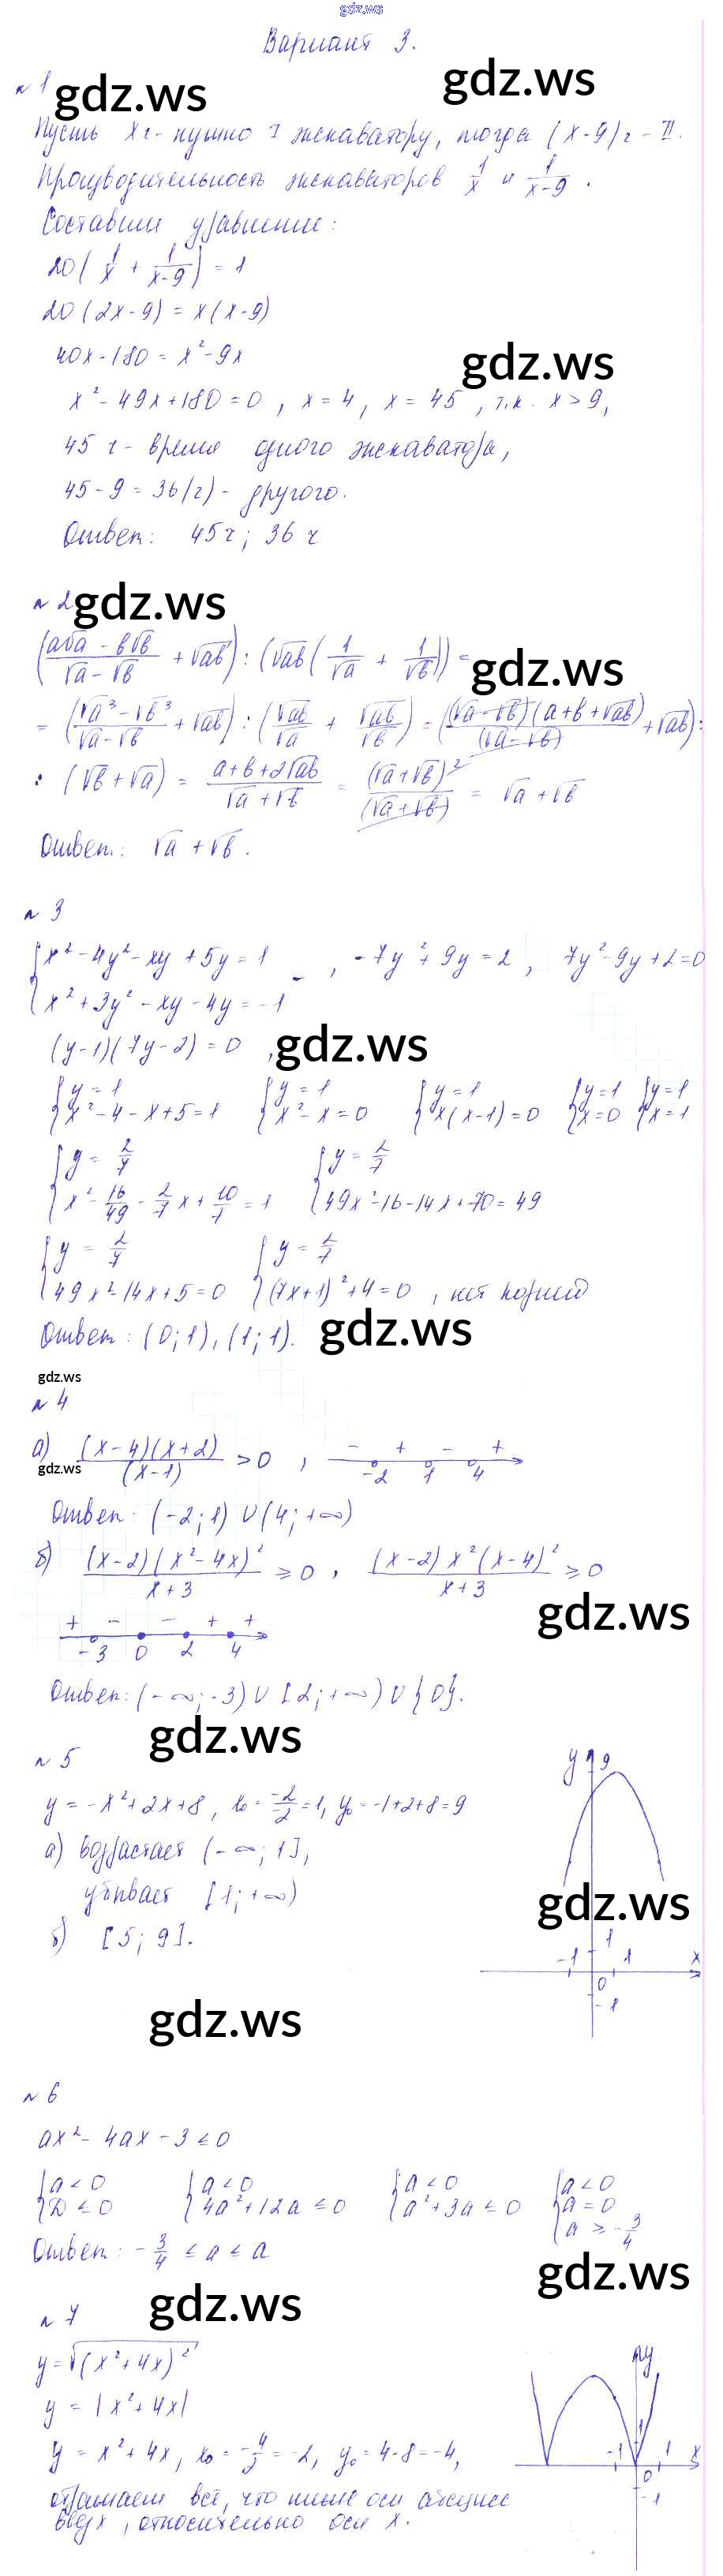 gdz.ws
Вариант 3.
№ 1
gdz.ws
gdz.ws
Пусть x ч - нужно I экскаватору, тогда (x-9) ч - II.
Производительность экскаваторов 1/x и 1/(x-9).
Составим уравнение:
20(1/x + 1/(x-9)) = 1
20(2x-9) = x(x-9)
40x-180 = x²-9x
gdz.ws
x²-49x+180=0, x=4, x=45, т.к. x>9,
45 ч - время одного экскаватора,
45-9=36(ч) - другого.
Ответ: 45 ч; 36 ч
№ 2
gdz.ws
gdz.ws
((a√a - b√b)/(√a-√b) + √ab) : (√ab(1/√a + 1/√b)) =
= ((√a³-√b³)/(√a-√b) + √ab) : (√ab/√a + √ab/√b) = ((√a-√b)(a+b+√ab)/(√a-√b) + √ab) :
: (√b+√a) = (a+b+2√ab)/(√a+√b) = (√a+√b)²/(√a+√b) = √a+√b
Ответ: √a+√b.
№ 3
{x²-4y²-xy+5y=1
{x²+3y²-xy-4y=-1 - , -7y²+9y=2, 7y²-9y+2=0
(y-1)(7y-2)=0,
gdz.ws
{y=1 {y=1 {y=1 {y=1 {y=1
{x²-4-x+5=1 {x²-x=0 {x(x-1)=0 {x=0 {x=1
{y=2/7 {y=2/7
{x²-16/49-2/7x+10/7=1 {49x²-16-14x+70=49
{y=2/7 {y=2/7
{49x²-14x+5=0 {(7x+1)²+4=0, нет корней
Ответ: (0;1), (1;1).
gdz.ws
gdz.ws
№ 4
а) (x-4)(x+2)/(x-1) > 0, - + - +
-2 1 4
gdz.ws
Ответ: (-2;1)∪(4;+∞)
б) (x-2)(x²-4x)²/(x+3) ≥ 0, (x-2)x²(x-4)²/(x+3) ≥ 0
gdz.ws
+ - - + +
-3 0 2 4
Ответ: (-∞;-3)∪[2;+∞)∪{0}.
gdz.ws
№ 5
y=-x²+2x+8, x₀=-2/-2=1, y₀=-1+2+8=9
а) возрастает (-∞;1],
убывает [1;+∞)
б) [5;9].
y 9
gdz.ws
1
-1 1 x
0
-1
gdz.ws
№ 6
ax²-4ax-3≤0
{a<0 {a<0 {a<0 {a<0
{D≤0 {4a²+12a≤0 {a²+3a≤0 {a=0
{a≥-3/4
Ответ: -3/4≤a≤a
gdz.ws
gdz.ws
№ 7
y=√(x²+4x)²
y=|x²+4x|
y=x²+4x, x₀=-4/2=-2, y₀=4-8=-4,
отражаем всё, что ниже оси абсцисс
вверх, относительно оси x.
y
1
-1 1 x
0
-1